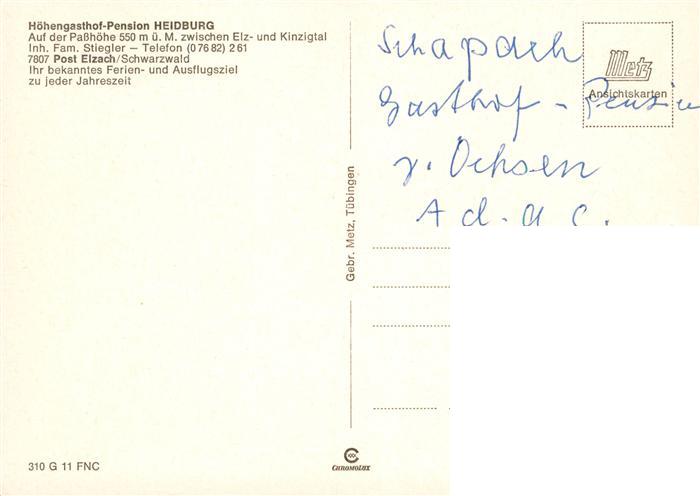 Höhengasthof-Pension HEIDBURG
Auf der Paßhöhe 550 m ü. M. zwischen Elz- und Kinzigtal
Inh. Fam. Stiegler – Telefon (0 76 82) 2 61
7807 Post Elzach/Schwarzwald
Ihr bekanntes Ferien- und Ausflugsziel
zu jeder Jahreszeit
310 G 11 FNC
Gebr. Metz, Tübingen
CHROMOLUX
Metz
Ansichtskarten
Schapach
Gasthof - Pension
z. Ochsen
A d. a c.